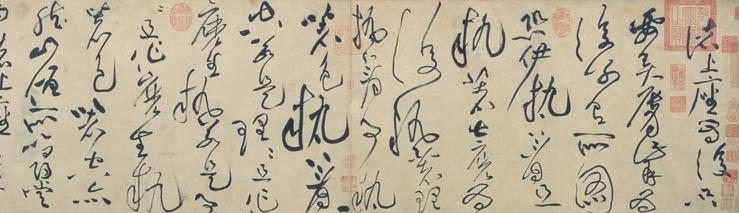 諸上座為復只
要弄脣觜為
復別有所圖
恐伊執著且
執著甚麼為
復執著理
執著事執
著色執著
空若是理理且作
麼生執若是事
事且作麼生執
著色著空亦
然山僧所以尋常
向諸上座